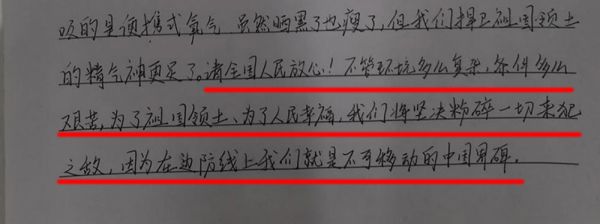 吸的是便携式氧气 虽然晒黑了也瘦了，但我们捍卫祖国领土
的精气神更足了。请全国人民放心！不管环境多么复杂，条件多么
艰苦，为了祖国领土、为了人民幸福，我们将坚决粉碎一切来犯
之敌，因为在边防线上我们就是不可移动的中国界碑。